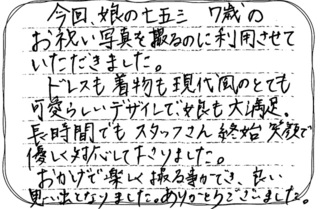 今回、娘の七五三 7歳の
お祝い写真を撮るのに利用させて
いただきました。
ドレスも着物も現代風のとても
可愛らしいデザインで、娘も大満足。
長時間でもスタッフさん終始笑顔で
優しく対応して下さりました。
おかげで楽しく撮る事ができ、良い
思い出となりました。ありがとうございました。